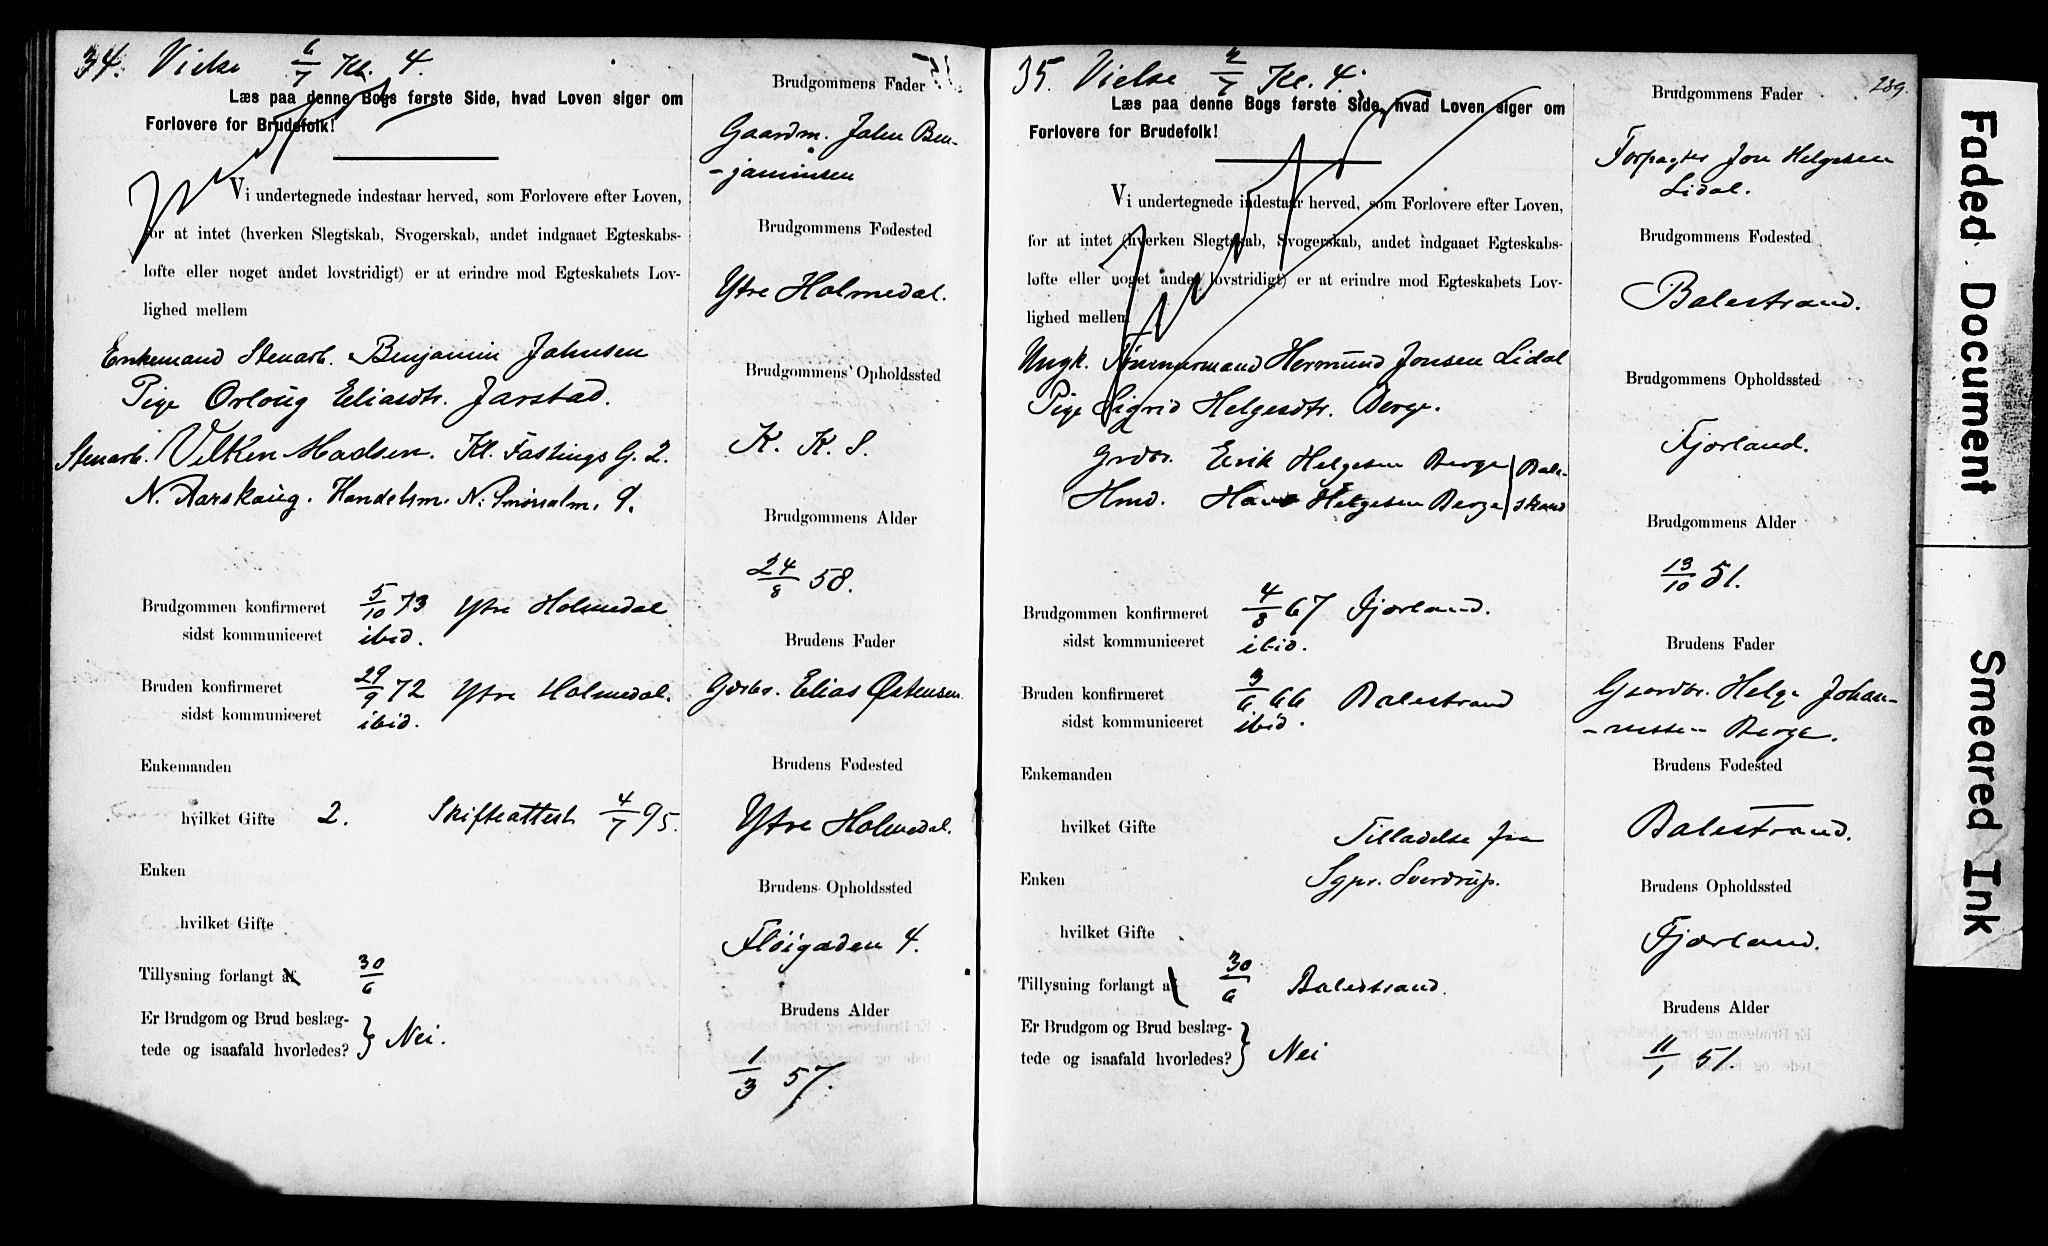 34. Vielse 6/7 Kl. 4.
Læs paa denne Bogs første Side, hvad Loven siger om
Forlovere for Brudefolk!
Vi undertegnede indestaar herved, som Forlovere efter Loven,
for at intet (hverken Slegtskab, Svogerskab, andet indgaaet Egteskabs-
løfte eller noget andet lovstridigt) er at erindre mod Egteskabets Lov-
lighed mellem
Enkemand Stenarb. Benjamin Johnsen
Pige Orloug Eliasdtr. Jarstad.
Stenarb. Vilken Madsen. Kl. Fastings G. 2.
N. Aarskoug. Handelsm. N. 9.
Brudgommen konfirmeret 5/10 73 Ytre Holmedal
sidst kommuniceret ibid.
Bruden konfirmeret 29/9 72 Ytre Holmedal.
sidst kommuniceret ibid.
Enkemanden
hvilket Gifte 2. Skifteattest 4/7 95.
Enken
hvilket Gifte
Tillysning forlangt af 30/6
Er Brudgom og Brud beslæg-
tede og isaafald hvorledes? } Nei.
Brudgommens Fader
Gaardm. John Ben-
-jaminsen
Brudgommens Fødested
Ytre Holmedal.
Brudgommens Opholdssted
K. K. S.
Brudgommens Alder
24/8 58.
Brudens Fader
Gdbr. Elias Østensen
Brudens Fødested
Ytre Holmedal.
Brudens Opholdssted
Fløigaden 4.
Brudens Alder
1/3 57.
35. Vielse 2/7 Kl. 4.
Læs paa denne Bogs første Side, hvad Loven siger om
Forlovere for Brudefolk!
Vi undertegnede indestaar herved, som Forlovere efter Loven,
for at intet (hverken Slegtskab, Svogerskab, andet indgaaet Egteskabs-
løfte eller noget andet lovstridigt) er at erindre mod Egteskabets Lov-
lighed mellem
Ungk. Tømmermand Hermund Jonsen Lidal
Pige Sigrid Helgesdtr. Berge.
Grdbr. Eirik Helgesen Berge } Bale-
Hmd. Hans Helgesen Berge } strand
Brudgommen konfirmeret 4/8 67 Fjærland.
sidst kommuniceret ibid.
Bruden konfirmeret 3/6 66 Balestrand
sidst kommuniceret ibid.
Enkemanden
hvilket Gifte Tilladelse fra
Enken Sgpr. Sverdrup.
hvilket Gifte
Tillysning forlangt af 30/6 Balestrand.
Er Brudgom og Brud beslæg-
tede og isaafald hvorledes? } Nei
289.
Brudgommens Fader
Forpagter Jon Helgesen
Lidal.
Brudgommens Fødested
Balestrand.
Brudgommens Opholdssted
Fjærland.
Brudgommens Alder
13/10 51.
Brudens Fader
Gaardbr. Helge Johan-
-nessen Berge.
Brudens Fødested
Balestrand.
Brudens Opholdssted
Fjærland.
Brudens Alder
11/1 51.
Faded Document
Smeared Ink